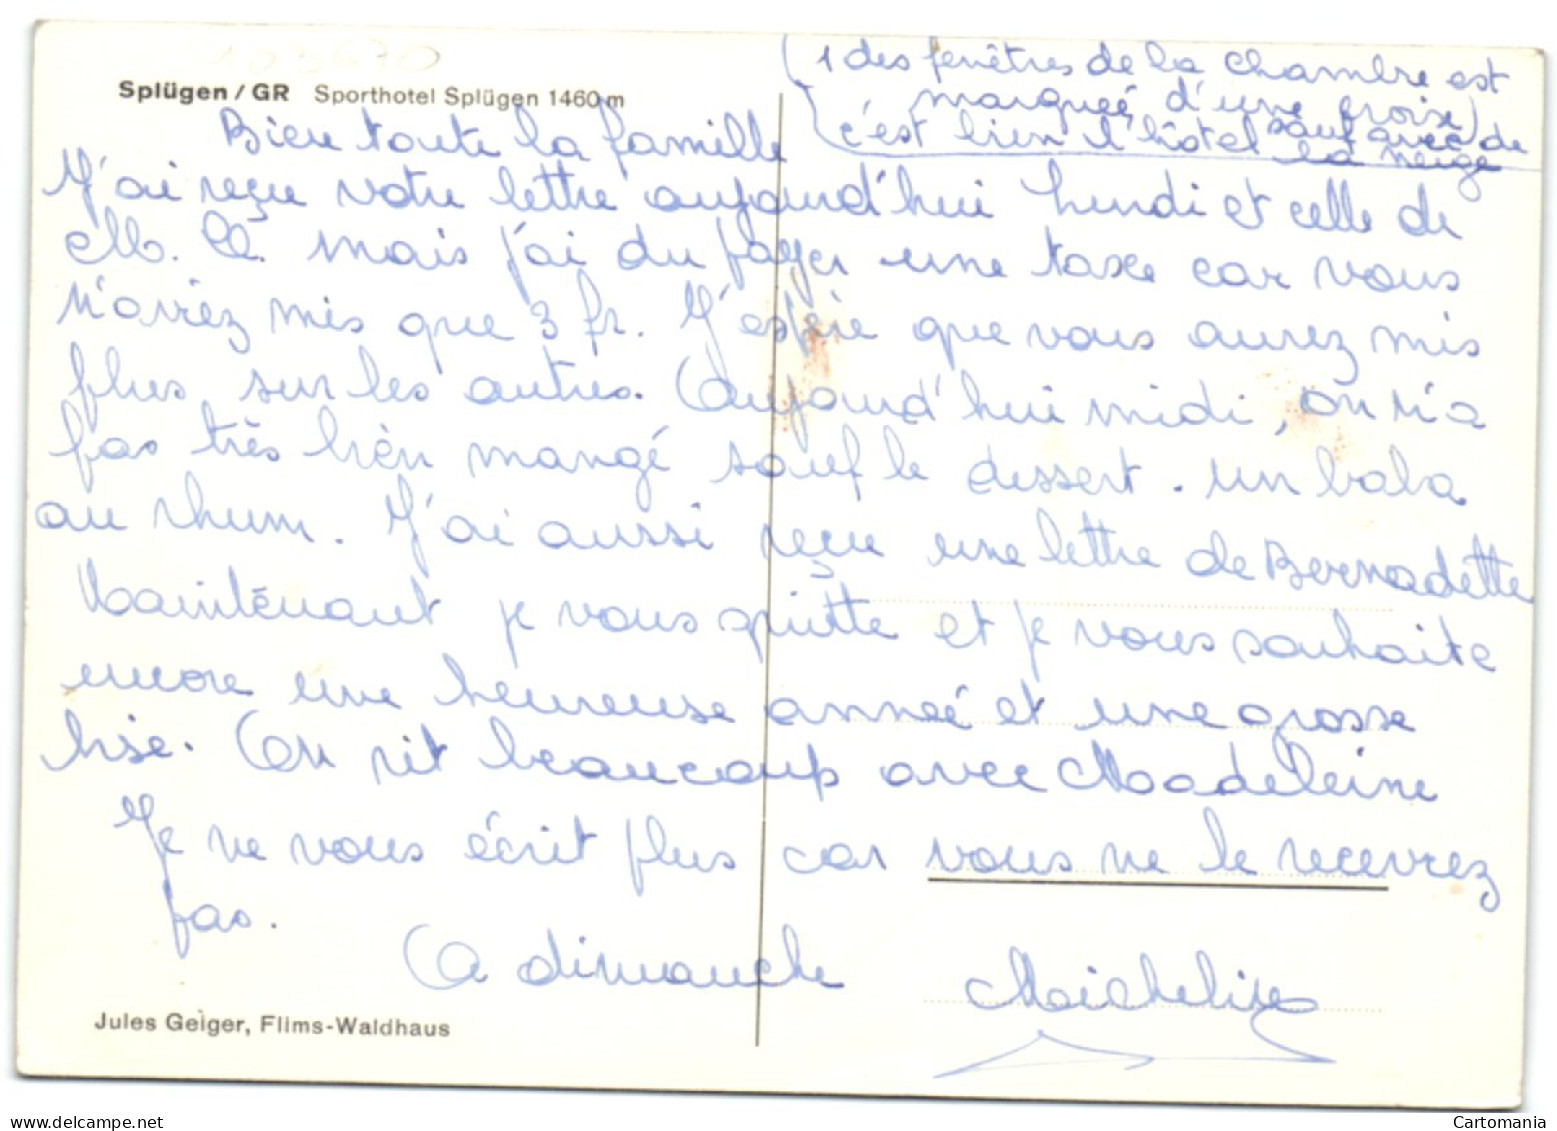 103670
Splügen / GR Sporthotel Splügen 1460 m
(1 des fenêtres de la chambre est
marqueé d'une croix)
c'est bien l'hôtel sauf avec de
la neige
toute la famille
J'ai reçu votre lettre aujourd'hui lundi et celle de
mais j'ai du payer une taxe car vous
n'aviez mis que 3 fr. J'espère que vous aurez mis
plus sur les autres. Aujourd'hui midi, on n'a
pas très bien mangé sauf le dessert. un baba
au rhum. J'ai aussi reçu une lettre de Bernadette
Mainténant je vous quitte et je vous souhaite
encore une heureuse anneé et une grosse
bise. On rit beaucoup avec Madeleine
Je ne vous écrit plus car vous ne le recevrez
pas.
A dimanche Micheline
Jules Geiger, Flims-Waldhaus
https://www.delcampe.net
Cartomania